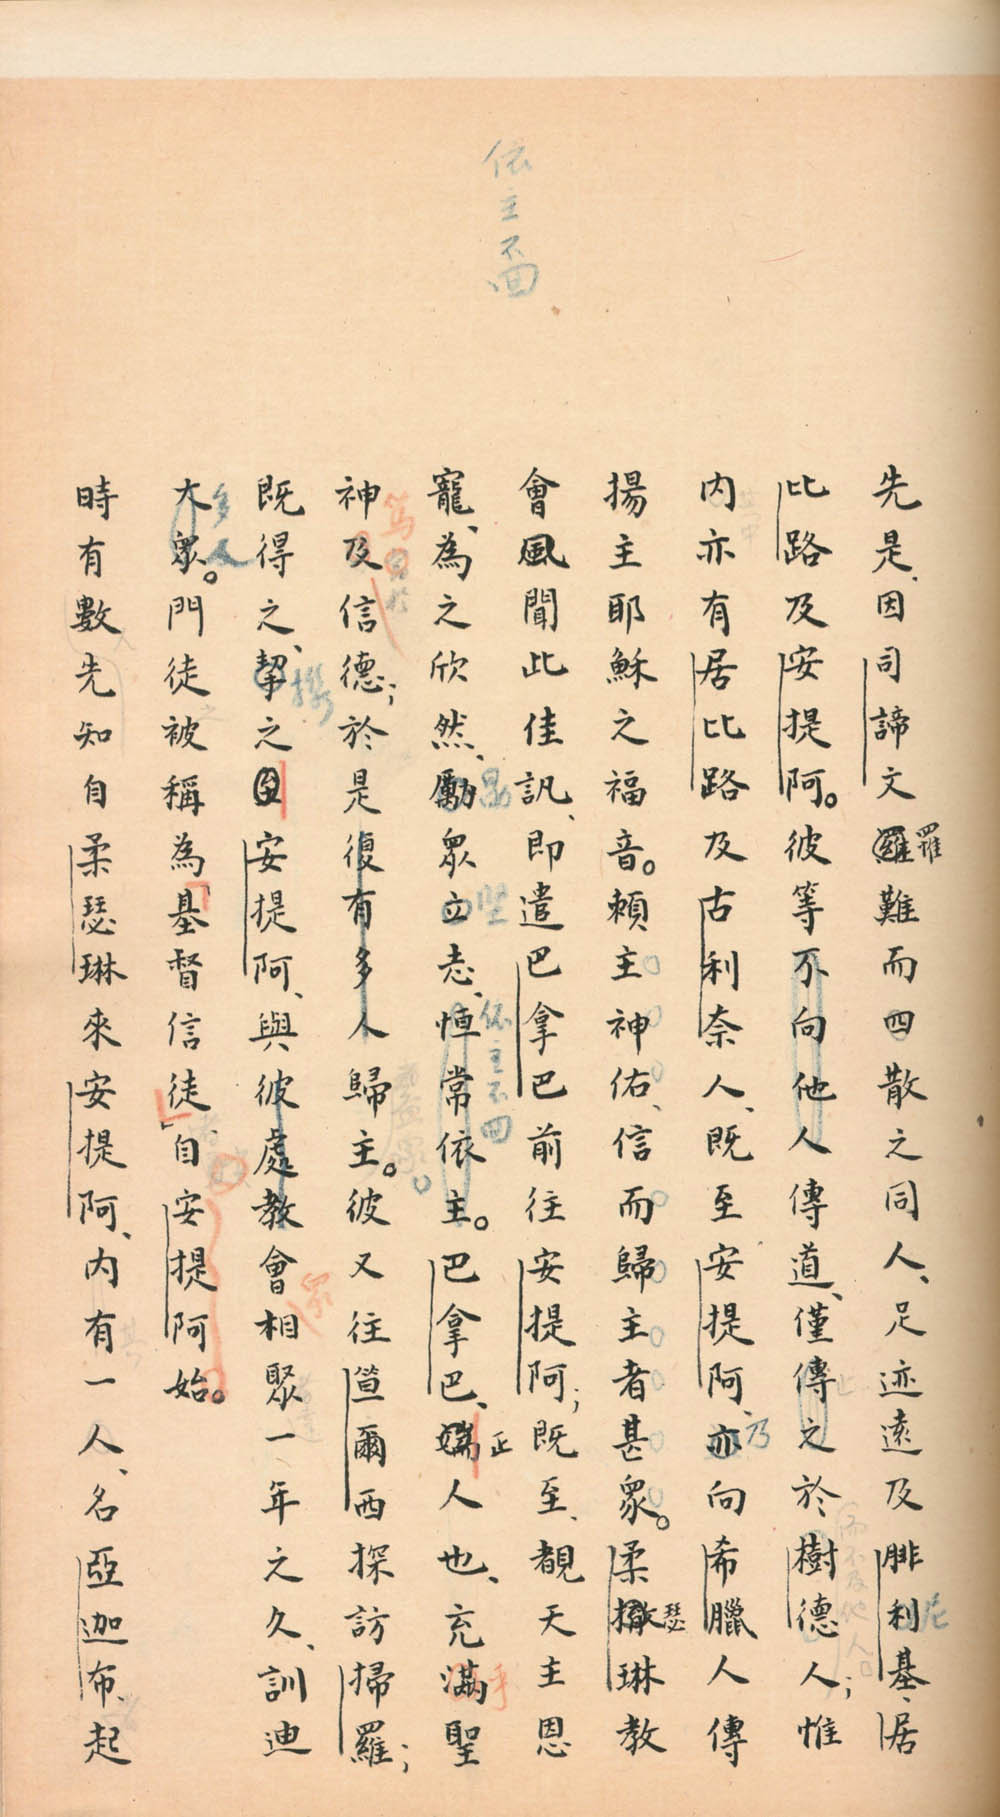 依主不回
先是、因司諦文羅難而四散之同人、足迹遠及腓利基、居
羅
尼
比路及安提阿。彼等不向他人傳道、僅傳之於樹德人；惟
而不及他人
內亦有居比路及古利奈人、既至安提阿、亦向希臘人傳
其中
乃
揚主耶穌之福音。賴主神佑、信而歸主者甚眾。柔撒琳教
瑟
會風聞此佳訊、即遣巴拿巴前往安提阿；既至、覩天主恩
寵、為之欣然、勵眾立志、恒常依主。巴拿巴、端人也、充滿聖
勗
堅
依主不回
正
乎
神及信德；於是復有多人歸主。彼又往笪爾西探訪掃羅；
篤
於
既得之、挈之回安提阿、與彼處教會相聚一年之久、訓迪
攜
眾
大眾。門徒被稱為「基督信徒」、自安提阿始。
多人
時有數先知自柔瑟琳來安提阿、內有一人、名亞迦布、起